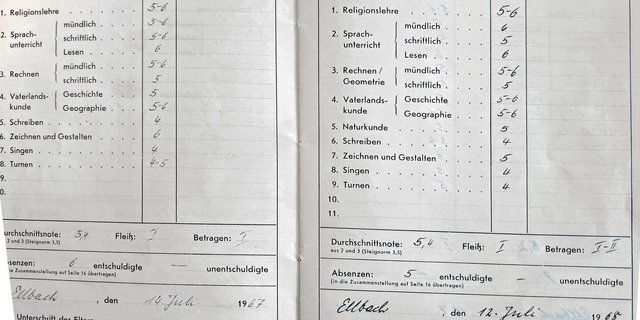 1. Religionslehre 5-6
2. Sprach- unterricht
mündlich 5-6
schriftlich 5
Lesen 6
3. Rechnen
mündlich 5-6
schriftlich 5
4. Vaterlands- kunde
Geschichte 5
Geographie 5-6
5. Schreiben 4
6. Zeichnen und Gestalten 6
7. Singen 4
8. Turnen 4-5
9.
0.
urchschnittsnote: 5,4 Fleiß: I Betragen: I
2 und 3 (Steignorm 3,5)
Absenzen: 6 entschuldigte — unentschuldigte
(in die Zusammenstellung auf Seite 16 übertragen)
Ellbach, den 14. Juli 1967
Unterschrift der Eltern
1. Religionslehre 5-6
2. Sprach- unterricht
mündlich 6
schriftlich 5
Lesen 6
3. Rechnen / Geometrie
mündlich 5-6
schriftlich 5
4. Vaterlands- kunde
Geschichte 5-6
Geographie 5-6
5. Naturkunde 5
6. Schreiben 4
7. Zeichnen und Gestalten 5
8. Singen 4
9. Turnen 4
10.
11.
Durchschnittsnote: 5,4 Fleiß: I Betragen: I-II
aus 2 und 3 (Steignorm 3,5)
Absenzen: 5 entschuldigte — unentschuldigte
(in die Zusammenstellung auf Seite 16 übertragen)
Ellbach, den 12. Juli 1968